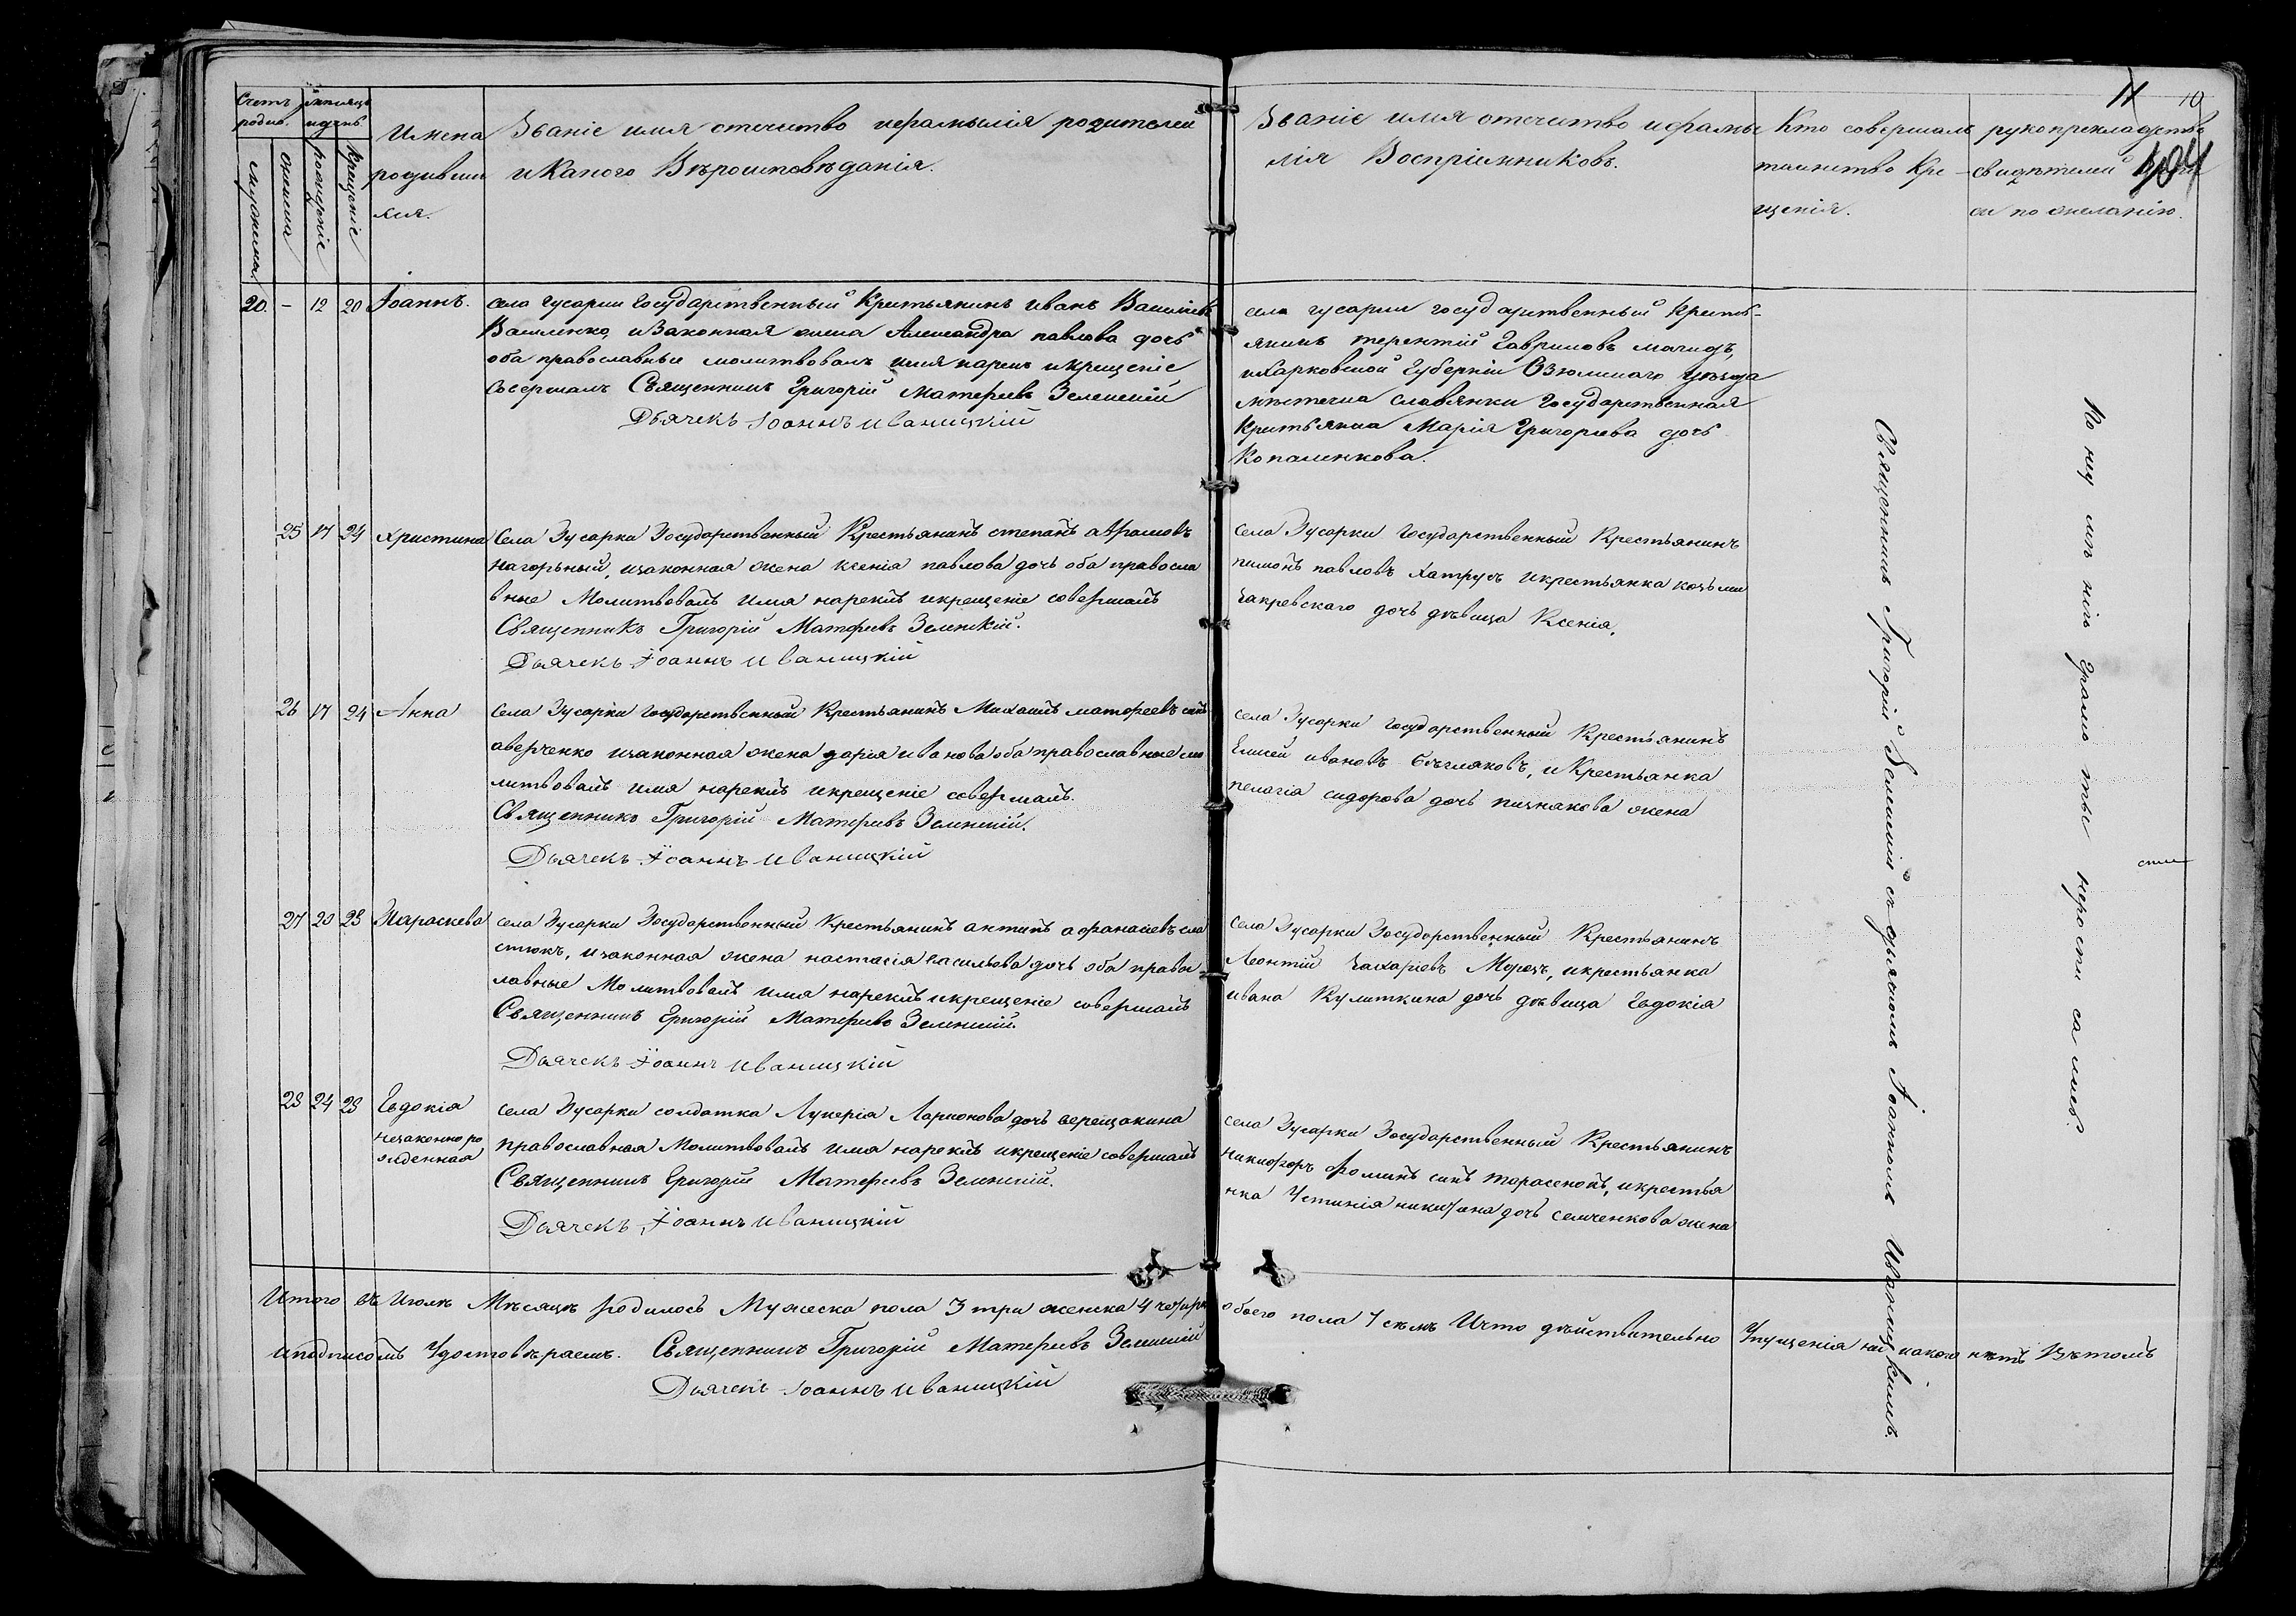 11 10
104
Счетъ родив.
Мѣсяцъ и день
Мужеска
Женска
рожденіе
Крещеніе
Имена родивши хся.
Званіе имя отечество ифамылія родителей
икакого Вѣроисповѣданія.
Званіе имя отечество ифамы
лія Воспріимниковъ.
Кто совершалъ
таинство Кре
щенія.
рукоприкладство
свидѣтелей
си по желанію.
20. – 12 20 Іоаннъ.
села гусарки государственный Крестьянинъ иванъ Васильевъ
Василенко, иЗаконная жена Александра павлова дочь
оба православные молитвовалъ имя нарекъ икрещеніе
совершалъ Священникъ Григорій матфеевъ Зеленскій
Дьячекъ Іоаннъ иваницкій
села гусарки государственный Кресть-
янинъ терентій Гавриловъ
иХарковской Губерніи Озюмскаго уѣзда
мѣстечка славянки Государственная
Крестьянка Марія Григорьева дочь
Копаленкова.
25 17 24 Христина
Села Гусарки Государственный Крестьянинъ степанъ аврамовъ
нагорный, изаконная жена ксенія павлова дочь оба правосла
вные Молитвовалъ имя нарекъ икрещеніе совершалъ
Священникъ Григорій Матфеевъ Зеленскій.
Дьячекъ Іоаннъ иваницкій
села Гусарки Государственный Крестьянинъ
павловъ Хатрусъ икрестьянка козьми
Закревскаго дочь дѣвица Ксенія.
26 17 24 Анна
Села Гусарки государственный Крестьянинъ Михаилъ матфеевъ сынъ
аверченко изаконная жена дарія иванова оба православные мо
литвовалъ имя нарекъ икрещеніе совершалъ.
Священнико Григорій Матфеевъ Зеленскій.
Дьячекъ Іоаннъ иваницкій
села Гусарки государственный Крестьянинъ
Елисей ивановъ Бѣгляковъ, иКрестьянка
пелагія сидорова дочь жена
27 20 23 Параскева
села Гусарки Государственный Крестьянинъ антипъ афанасіевъ сла
стюкъ, изаконная жена настасія васильева дочь оба правос
лавные Молитвовалъ имя нарекъ икрещеніе совершалъ
Священникъ Григорій Матфеевъ Зеленскій.
Дьячекъ Іоаннъ иваницкій
села Гусарки Государственный Крестьянинъ
Леонтій Захаріевъ Морозъ, икрестьянка
ивана Кулиткина дочь дѣвица Евдокія
28 24 28 Евдокія
незаконноро
жденная
села Гусарки солдатка Лукерія Ларионова дочь верещакина
православная Молитвовалъ имя нарекъ икрещеніе совершалъ
Священникъ Григорій Матфеевъ Зеленскій.
Дьячекъ Іоаннъ иваницкій
села Гусарки Государственный Крестьянинъ
никифоръ фоминъ сынъ тарасенокъ, икрестья
нка Устинія никитина дочь семченкова жена
Священникъ Григорій Зеленскій съ дьячкомъ Іоанномъ Иваницкимъ.
По неу мѣ нію грамо ты неросписалися.
Итого въ июлѣ Мѣсяцѣ родилось Мужеска пола 3 три женска 4 четыре обоего пола 7 семъ Ичто дѣйствительно Упущенія ни какого нѣтъ Вътомъ
иподписомъ Удостовѣраемъ. Священникъ Григорій Матфеевъ Зеленскій
Дьячекъ Іоаннъ иваницкій